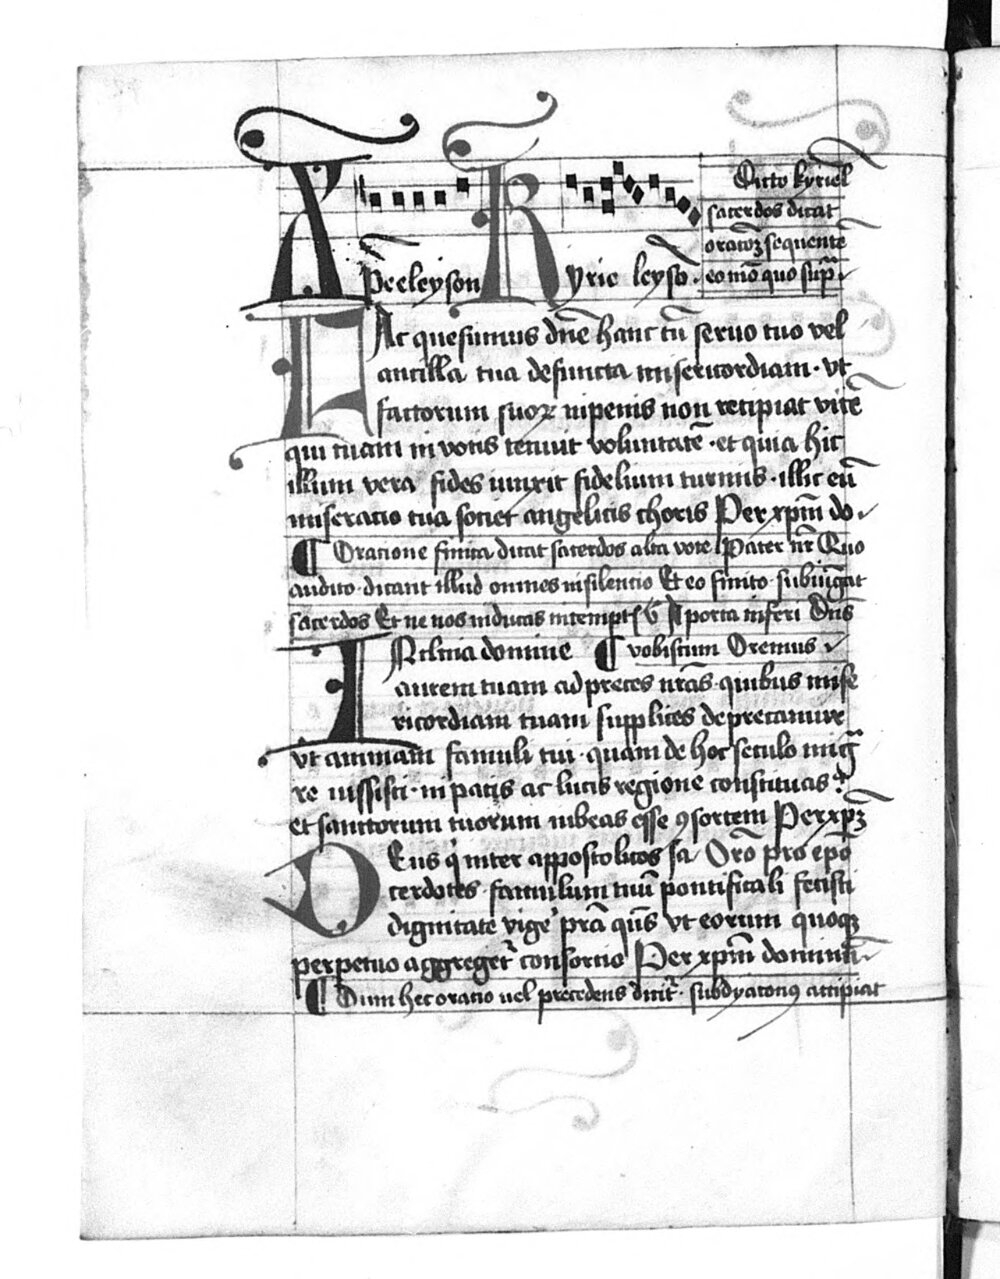 Dicto kyriel
sacerdos dicat
oratōꝫ sequente
Xpeeleyson Kyrie leysō. eo mō quo sup̄
FAc quesumus dn̄e hanc cū seruo tuo vel
ancilla tua defuncta misericordiam · vt
factorum suoꝝ in penis non recipiat vicē
qui tuam in votis tenuit voluntatē · et quia hic
illum vera fides iunxit fidelium turmis · illic eū
miseratio tua societ angelicis choris Per xp̄m do
¶ Oratione finita dicat sacerdos alta voce Pater nr̄ Quo
audito · dicant illud omnes in silentio Et eo finito · subiūgat
sacerdos Et ne nos inducas in tempt℣ A porta inferi Dn̄s
INclina domine ¶ vobiscum Oremus
aurem tuam ad preces nr̄as · quibus mise
ricordiam tuam supplices deprecamur
vt animam famuli tui · quam de hoc seculo migr̄
re iussisti · in pacis ac lucis regione constituas ·
et sanctorum tuorum iubeas esse ꝯsortem Per xp̄ꝫ
DEus q̇ inter appostolicos sa Orō pro epō
cerdotes · famulum tuū pontificali fecisti
dignitate vige' pr̄a qūs vt eorum quoqꝫ
perpetuo aggreget᷑ consorcio Per xp̄m dominū
¶ Dum hec oratio uel precedens dicit᷑ · subdyaconꝯ accipiat